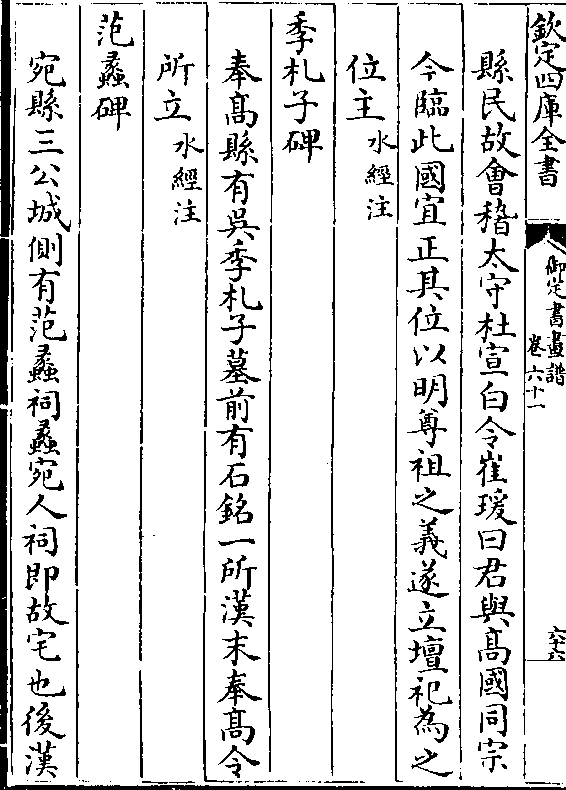 欽定四庫全書
御定書畫譜
卷六十一
六十六
縣民故會稽太守杜宣白令崔瑗曰君與髙國同宗
今臨此國宜正其位以明尊祖之義遂立壇祀為之
位主水經注
季札子碑
奉髙縣有吳季札子墓前有石銘一所漢末奉髙令
所立水經注
范蠡碑
宛縣三公城側有范蠡祠蠡宛人祠即故宅也後漢